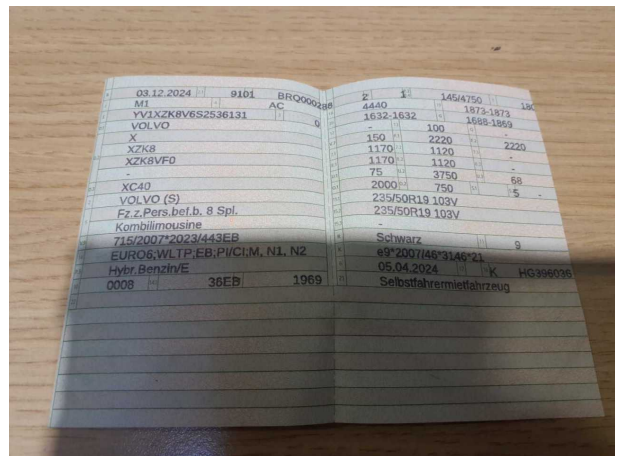 03.12.2024 9101 BRQ000288
M1 AC
YV1XZK8V6S2536131 0
VOLVO
X
XZK8
XZK8VF0
-
XC40
VOLVO (S)
Fz.z.Pers.bef.b. 8 Spl.
Kombilimousine
715/2007*2023/443EB
EURO6;WLTP;EB;PI/CI;M, N1, N2
Hybr.Benzin/E
0008 36EB 1969
2 1 145/4750 180
4440 1873-1873
1632-1632 1688-1869
- 100 -
150 2220 2220
1170 1120 -
1170 1120 -
75 3750 68
2000 750 5 -
235/50R19 103V
235/50R19 103V
-
Schwarz 9
e9*2007/46*3146*21
05.04.2024 K HG396036
Selbstfahrermietfahrzeug